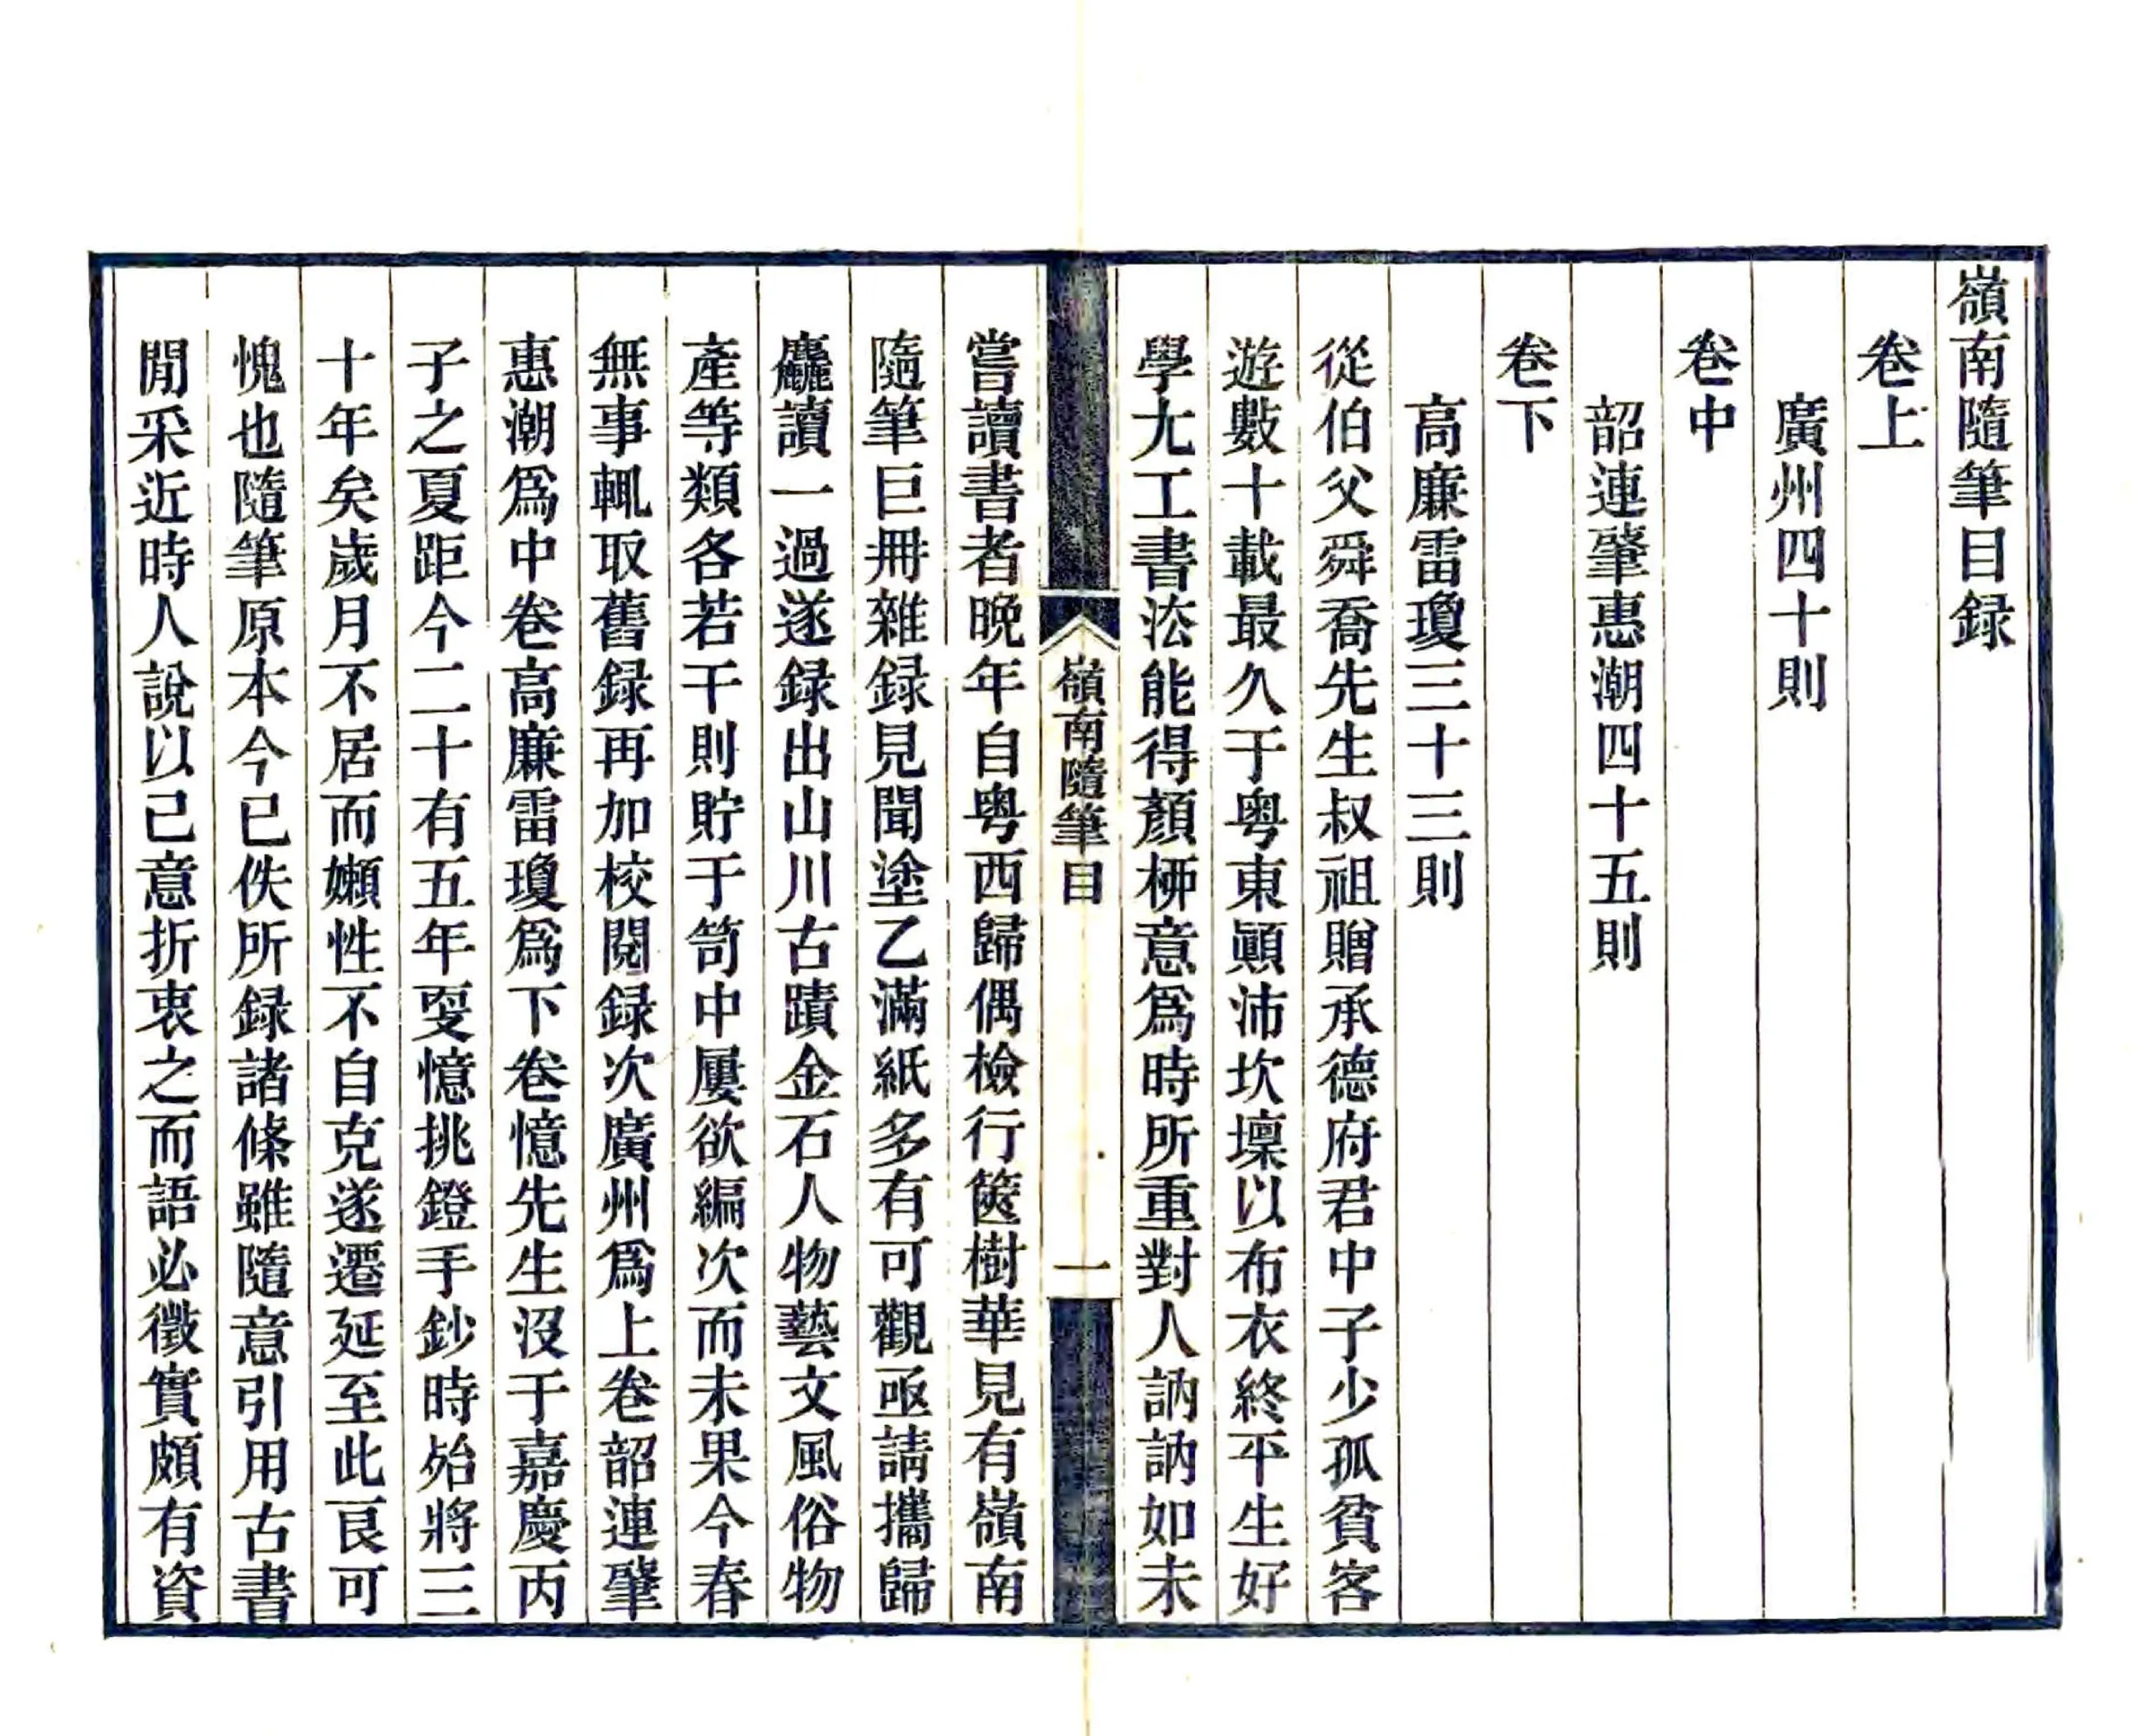 嶺南隨筆目録
卷上
廣州四十則
卷中
韶連肇惠潮四十五則
卷下
高廉雷瓊三十三則
從伯父舜喬先生叔祖贈承德府君中子少孤貧客
遊數十載最久于粤東顚沛坎壈以布衣終平生好
學尢工書法能得顏桺意爲時所重對人訥訥如未
嶺南隨筆目
一
嘗讀書者晚年自粤西歸偶檢行篋樹華見有嶺南
隨筆巨冊雜録見聞塗乙滿紙多有可觀亟請攜歸
麤讀一過遂録出山川古蹟金石人物藝文風俗物
產等類各若干則貯于笥中屢欲編次而未果今春
無事輒取舊録再加校閱録次廣州爲上卷韶連肇
惠潮爲中卷高廉雷瓊爲下卷憶先生沒于嘉慶丙
子之夏距今二十有五年㪅憶挑鐙手鈔時殆將三
十年矣歲月不居而嬾性不自克遂遷延至此良可
愧也隨筆原本今已佚所録諸條雖隨意引用古書
閒采近時人說以己意折衷之而語必徵實頗有資